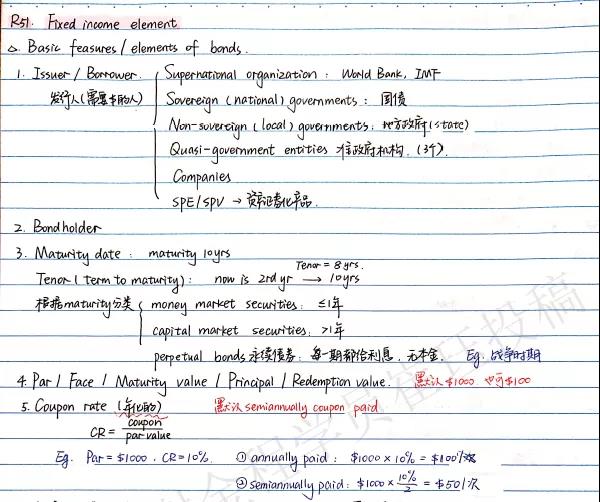 R51. Fixed income element
△ Basic feasures / elements of bonds.
1. Issuer / Borrower. Supernational organization: World Bank, IMF
发行人(需要钱的人) Sovereign (national) governments: 国债
Non-sovereign (local) governments: 地方政府 (state)
Quasi-government entities 准政府机构. (3个).
Companies
SPE/SPV → 资产证券化产品.
2. Bondholder
3. Maturity date: maturity 10yrs
Tenor = 8 yrs.
Tenor (term to maturity): now is 2rd yr → 10yrs
根据maturity分类 money market securities: ≤1年
capital market securities: >1年
perpetual bonds 永续债券: 每一期都给利息, 无本金. Eg. 战争时期
4. Par / Face / Maturity value / Principal / Redemption value. 默认$1000 也可$100
5. Coupon rate (年化的) 默认 semiannually coupon paid
CR = coupon / par value
Eg. Par = $1000. CR = 10%. ① annually paid: $1000 × 10% = $100/次
② semiannually paid: $1000 × 10%/2 = $50/次
金程学员崔珏投稿